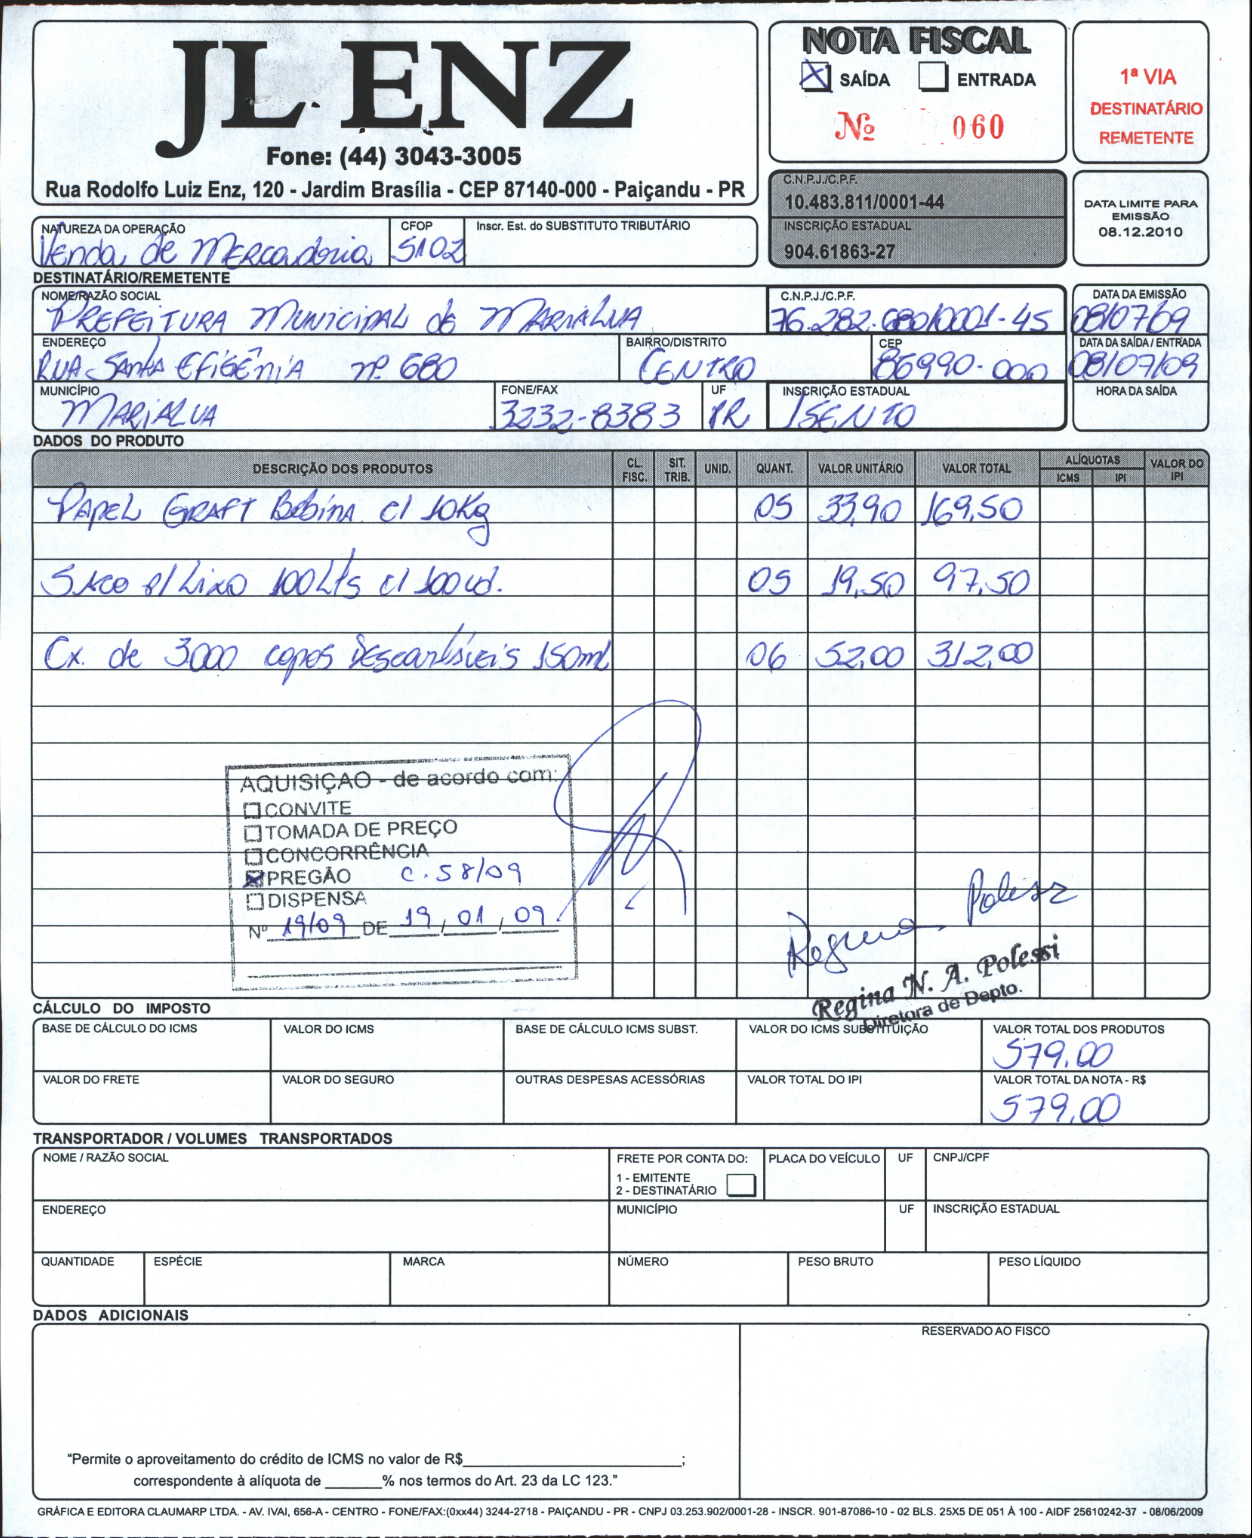 JL ENZ
Fone: (44) 3043-3005
Rua Rodolfo Luiz Enz, 120 - Jardim Brasília - CEP 87140-000 - Paiçandu - PR
NOTA FISCAL
X SAÍDA ENTRADA
Nº 060
1ª VIA
DESTINATÁRIO
REMETENTE
C.N.P.J./C.P.F.
10.483.811/0001-44
INSCRIÇÃO ESTADUAL
904.61863-27
DATA LIMITE PARA
EMISSÃO
08.12.2010
NATUREZA DA OPERAÇÃO CFOP Inscr. Est. do SUBSTITUTO TRIBUTÁRIO
Venda de Mercadoria 5102
DESTINATÁRIO/REMETENTE
NOME/RAZÃO SOCIAL C.N.P.J./C.P.F. DATA DA EMISSÃO
PREFEITURA MUNICIPAL de MARIALVA 76.282.680/0001-45 08/07/09
ENDEREÇO BAIRRO/DISTRITO CEP DATA DA SAÍDA / ENTRADA
RUA SANTA EFIGÊNIA nº 680 CENTRO 86990-000 08/07/09
MUNICÍPIO FONE/FAX UF INSCRIÇÃO ESTADUAL HORA DA SAÍDA
MARIALVA 3232-8383 PR ISENTO
DADOS DO PRODUTO
DESCRIÇÃO DOS PRODUTOS CL. FISC. SIT. TRIB. UNID. QUANT. VALOR UNITÁRIO VALOR TOTAL ALÍQUOTAS ICMS IPI VALOR DO IPI
PAPEL GRAFT Bobina c/ 10Kg 05 33,90 169,50
SACO p/ Lixo 100Lts c/ 100ud. 05 19,50 97,50
Cx. de 3000 copos Descartáveis 150ml 06 52,00 312,00
AQUISIÇÃO - de acordo com:
CONVITE
TOMADA DE PREÇO
CONCORRÊNCIA
X PREGÃO C.58/09
DISPENSA
Nº 19/09 DE 19 / 01 / 09
Regina Polessi
Regina N. A. Polessi
Diretora de Depto.
CÁLCULO DO IMPOSTO
BASE DE CÁLCULO DO ICMS VALOR DO ICMS BASE DE CÁLCULO ICMS SUBST. VALOR DO ICMS SUBSTITUIÇÃO VALOR TOTAL DOS PRODUTOS
579,00
VALOR DO FRETE VALOR DO SEGURO OUTRAS DESPESAS ACESSÓRIAS VALOR TOTAL DO IPI VALOR TOTAL DA NOTA - R$
579,00
TRANSPORTADOR / VOLUMES TRANSPORTADOS
NOME / RAZÃO SOCIAL FRETE POR CONTA DO: PLACA DO VEÍCULO UF CNPJ/CPF
1 - EMITENTE
2 - DESTINATÁRIO
ENDEREÇO MUNICÍPIO UF INSCRIÇÃO ESTADUAL
QUANTIDADE ESPÉCIE MARCA NÚMERO PESO BRUTO PESO LÍQUIDO
DADOS ADICIONAIS
RESERVADO AO FISCO
"Permite o aproveitamento do crédito de ICMS no valor de R$____;
correspondente à alíquota de ____% nos termos do Art. 23 da LC 123."
GRÁFICA E EDITORA CLAUMARP LTDA. - AV. IVAI, 656-A - CENTRO - FONE/FAX:(0xx44) 3244-2718 - PAIÇANDU - PR - CNPJ 03.253.902/0001-28 - INSCR. 901-87086-10 - 02 BLS. 25X5 DE 051 À 100 - AIDF 25610242-37 - 08/06/2009